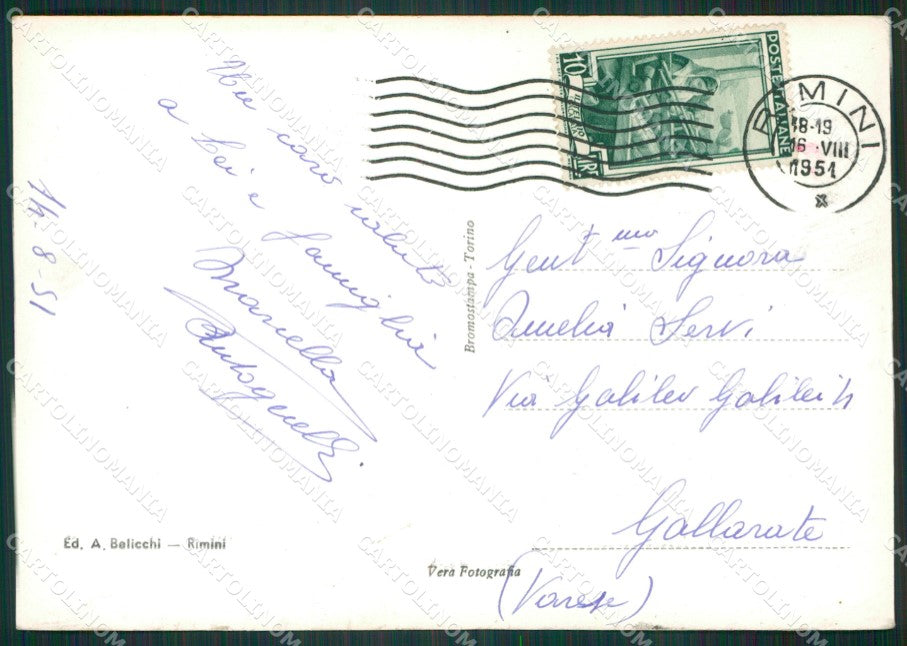 14-8-51
Un caro saluto
a Lei e
famiglia
Marcella
Antognelli
Ed. A. Belicchi — Rimini
Vera Fotografia
Bromostampa - Torino
10 LIRE
POSTE ITALIANE
RIMINI
18-19
16 VIII
1951
Gent.mo Signora
Amelia Servi
Via Galileo Galilei 4
Gallarate
(Varese)
CARTOLINOMANIA